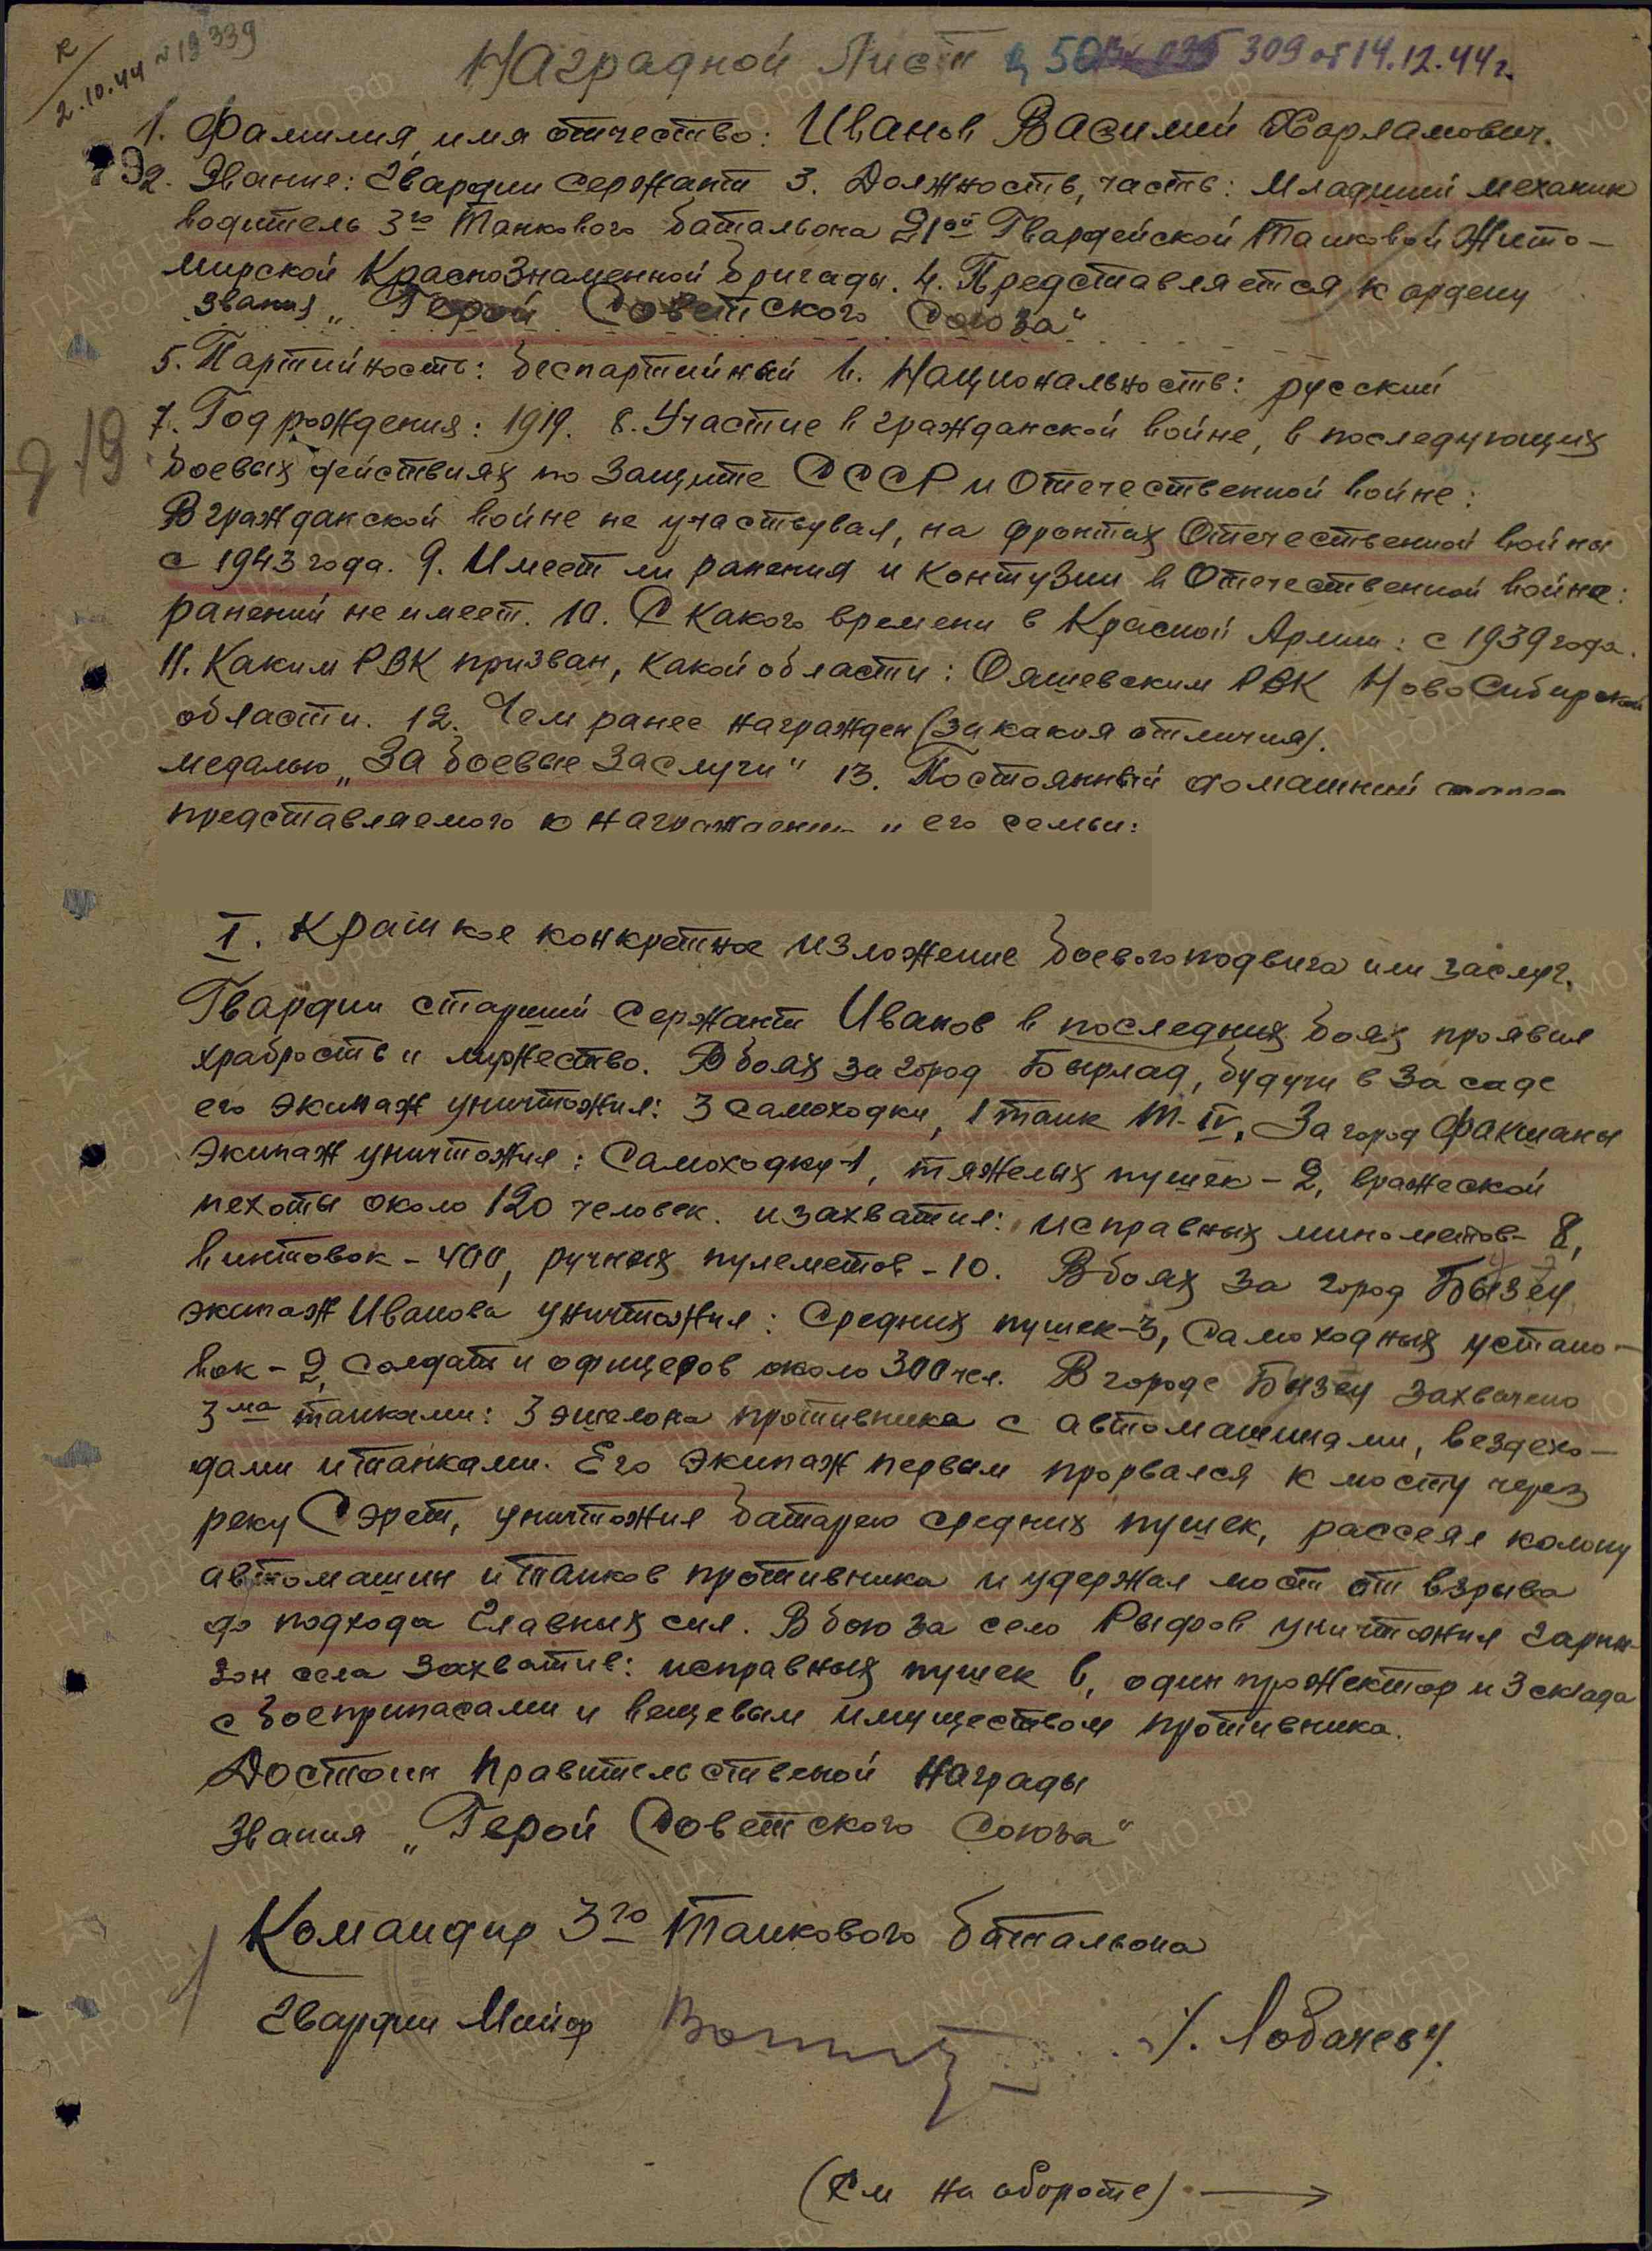 2.10.44 №19339
Наградной Лист 309 от 14.12.44 г.
1. Фамилия, имя отчество: Иванов Василий Харламович.
2. Звание: Гвардии сержант 3. Должность, часть: Младший механик
водитель 3го Танкового батальона 21ой Гвардейской Танковой Жито-
мирской Краснознаменной Бригады. 4. Представляется к ордену
звания „Герой Советского Союза“
5. Партийность: беспартийный 6. Национальность: русский
7. Год рождения: 1919. 8. Участие в гражданской войне, в последующих
боевых действиях по защите СССР и Отечественной войне:
В гражданской войне не участвувал, на фронтах Отечественной войны
с 1943 года. 9. Имеет ли ранения и контузии в Отечественной войне:
ранений не имеет. 10. С какого времени в Красной Армии: с 1939 года.
11. Каким РВК призван, какой области: Ояшевским РВК Новосибирской
области. 12. Чем ранее награжден (за какия отличия).
медалью „За боевые заслуги“ 13. Постоянный домашний
представляемого к награждению и его семьи:
I. Краткое конкретное изложение боевого подвига или заслуг.
Гвардии старший сержант Иванов в последних боях проявил
храбрость и мужество. В боях за город Бырлад, будучи в засаде
его экипаж уничтожил: 3 самоходки, 1 танк Т-IV, За город Факшаны
экипаж уничтожил: самоходку-1, тяжелых пушек-2, вражеской
пехоты около 120 человек. и захватил: исправных минометов-8,
винтовок-400, ручных пулеметов-10. В боях за город Бызеу
экипаж Иванова уничтожил: средних пушек-3, самоходных устано-
вок-2, солдат и офицеров около 300 чел. В городе Бызеу захвачено
3мя танками: 3 эшелона противника с автомашинами, вездехо-
дами и танками. Его экипаж первым прорвался к мосту через
реку Сэрет, уничтожил батарею средних пушек, рассеял колону
автомашин и танков противника и удержал мост от взрыва
до подхода главных сил. В бою за село Рыфов уничтожил гарни-
зон села захватив: исправных пушек 6, один прожектор и 3 склада
с боеприпасами и вещевым имуществом противника.
Достоин Правительственой Награды
Звания „Герой Советского Союза“
Командир 3го Танкового батальона
Гвардии Майор
(См на обороте) →
ПАМЯТЬ НАРОДА
ЦА МО РФ